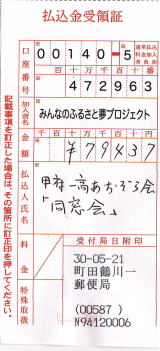 払込金受領証
口座番号
00140-5
通常払込料金加入者負担
百十万千百十番
472963
加入者名
みんなのふるさと夢プロジェクト
金額
千百十万千百十円
¥79437
払込人氏名
あおぞら会
「同窓会」
料金
特殊取扱
受付局日附印
30-05-21
町田鶴川一
郵便局
(00587)
N94120006
記載事項を訂正した場合は、その箇所に訂正印を押してください。